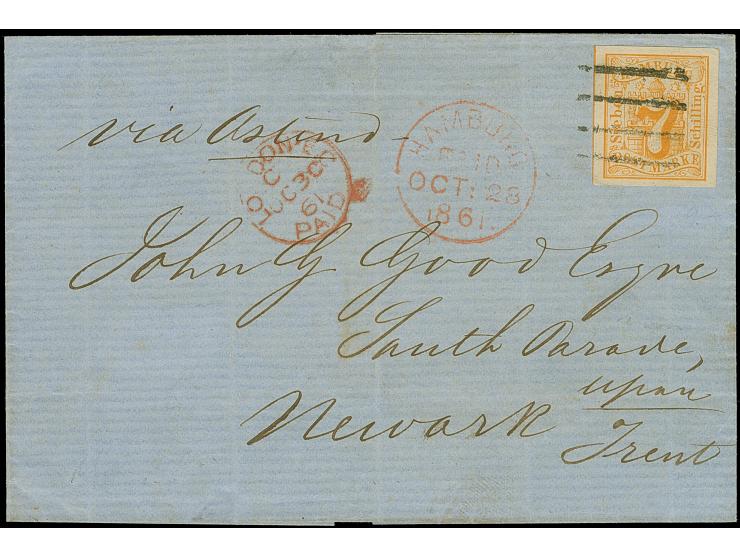 via Ostend
HAMBURG
PAID
OCT: 28
1861.
LONDON
OC 30
61
PAID
HAMBURG
Sieben
7
Schilling
POSTMARKE
John G Good Esqre
South Parade,
Newark upon
Trent